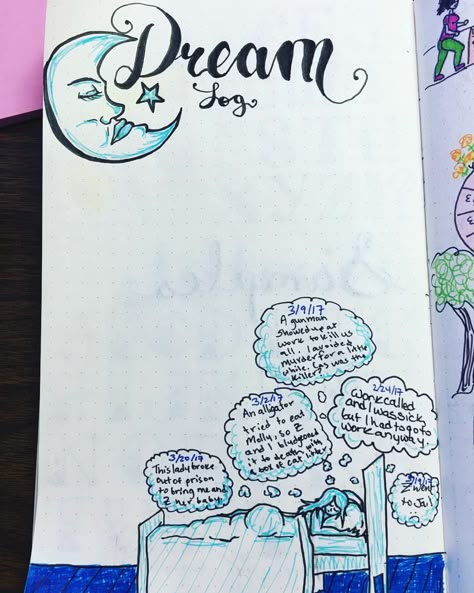 Dream
Log
3/9/17
A gunman
showed up at
work to kill us
all. I avoided
murder for a little
while. Cps was the
killer?
3/2/17
An alligator
tried to eat
Molly, so Z
and I bludgeoned
it to death with
a box of cat litter
2/24/17
Work called
and I was sick,
but I had to go to
work anyway.
3/20/17
This lady broke
out of prison
to bring me and
Z her baby
Z went
to Jail